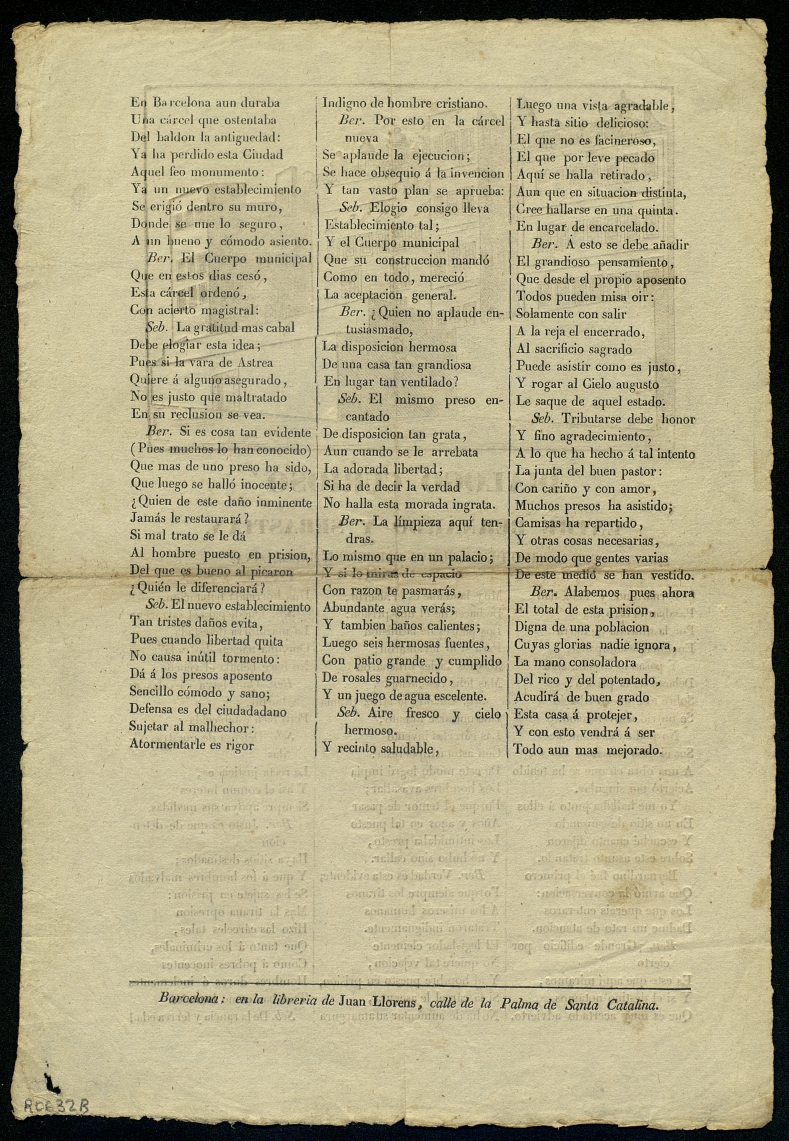 En Barcelona aun duraba
Una cárcel que ostentaba
Del baldon la antiguedad:
Ya ha perdido esta Ciudad
Aquel feo monumento:
Ya un nuevo establecimiento
Se erigió dentro su muro,
Donde se une lo seguro,
A un bueno y cómodo asiento.
Ber. El Cuerpo municipal
Que en estos dias cesó,
Esta cárcel ordenó,
Con acierto magistral:
Seb. La gratitud mas cabal
Debe elogiar esta idea;
Pues si la vara de Astrea
Quiere á alguno asegurado,
No es justo que maltratado
En su reclusion se vea.
Ber. Si es cosa tan evidente
(Pues muchos lo han conocido)
Que mas de uno preso ha sido,
Que luego se halló inocente;
¿Quien de este daño inminente
Jamás le restaurará?
Si mal trato se le dá
Al hombre puesto en prision,
Del que es bueno al picaron
¿Quién le diferenciará?
Seb. El nuevo establecimiento
Tan tristes daños evita,
Pues cuando libertad quita
No causa inútil tormento:
Dá á los presos aposento
Sencillo cómodo y sano;
Defensa es del ciudadadano
Sujetar al malhechor:
Atormentarle es rigor
Indigno de hombre cristiano.
Ber. Por esto en la cárcel
nueva
Se aplaude la ejecucion;
Se hace obsequio á la invencion
Y tan vasto plan se aprueba:
Seb. Elogio consigo lleva
Establecimiento tal;
Y el Cuerpo municipal
Que su construccion mandó
Como en todo, mereció
La aceptacion general.
Ber. ¿Quien no aplaude en-
tusiasmado,
La disposicion hermosa
De una casa tan grandiosa
En lugar tan ventilado?
Seb. El mismo preso en-
cantado
De disposicion tan grata,
Aun cuando se le arrebata
La adorada libertad;
Si ha de decir la verdad
No halla esta morada ingrata.
Ber. La límpieza aquí ten-
dras.
Lo mismo que en un palacio;
Y si lo miras de espacio
Con razon te pasmarás,
Abundante agua verás;
Y tambien baños calientes;
Luego seis hermosas fuentes,
Con patio grande y cumplido
De rosales guarnecido,
Y un juego de agua escelente.
Seb. Aire fresco y cielo
hermoso.
Y recinto saludable,
Luego una vista agradable,
Y hasta sitio delicioso:
El que no es facineroso,
El que por leve pecado
Aquí se halla retirado,
Aun que en situacion distinta,
Cree hallarse en una quinta.
En lugar de encarcelado.
Ber. A esto se debe añadir
El grandioso pensamiento,
Que desde el propio aposento
Todos pueden misa oir:
Solamente con salir
A la reja el encerrado,
Al sacrificio sagrado
Puede asistir como es justo,
Y rogar al Cielo augusto
Le saque de aquel estado.
Seb. Tributarse debe honor
Y fino agradecimiento,
A lo que ha hecho á tal intento
La junta del buen pastor:
Con cariño y con amor,
Muchos presos ha asistido;
Camisas ha repartido,
Y otras cosas necesarias,
De modo que gentes varias
De este medio se han vestido.
Ber. Alabemos pues ahora
El total de esta prision,
Digna de una poblacion
Cuyas glorias nadie ignora,
La mano consoladora
Del rico y del potentado,
Acudirá de buen grado
Esta casa á protejer,
Y con esto vendrá á ser
Todo aun mas mejorado.
Barcelona: en la libreria de Juan Llorens, calle de la Palma de Santa Catalina.
RO632B